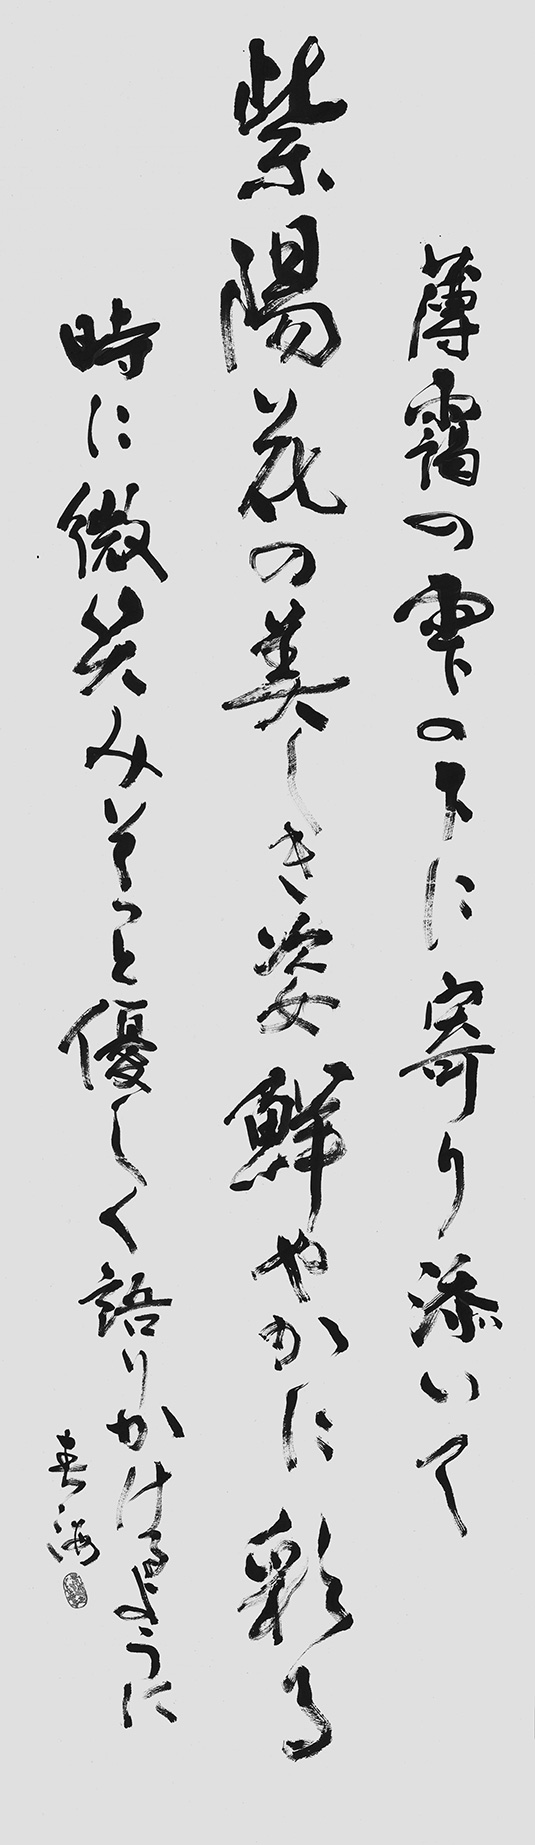 薄靄の雫の下に寄り添いて
紫陽花の美しき姿鮮やかに彩る
時に微笑みそっと優しく語りかけるように
春海